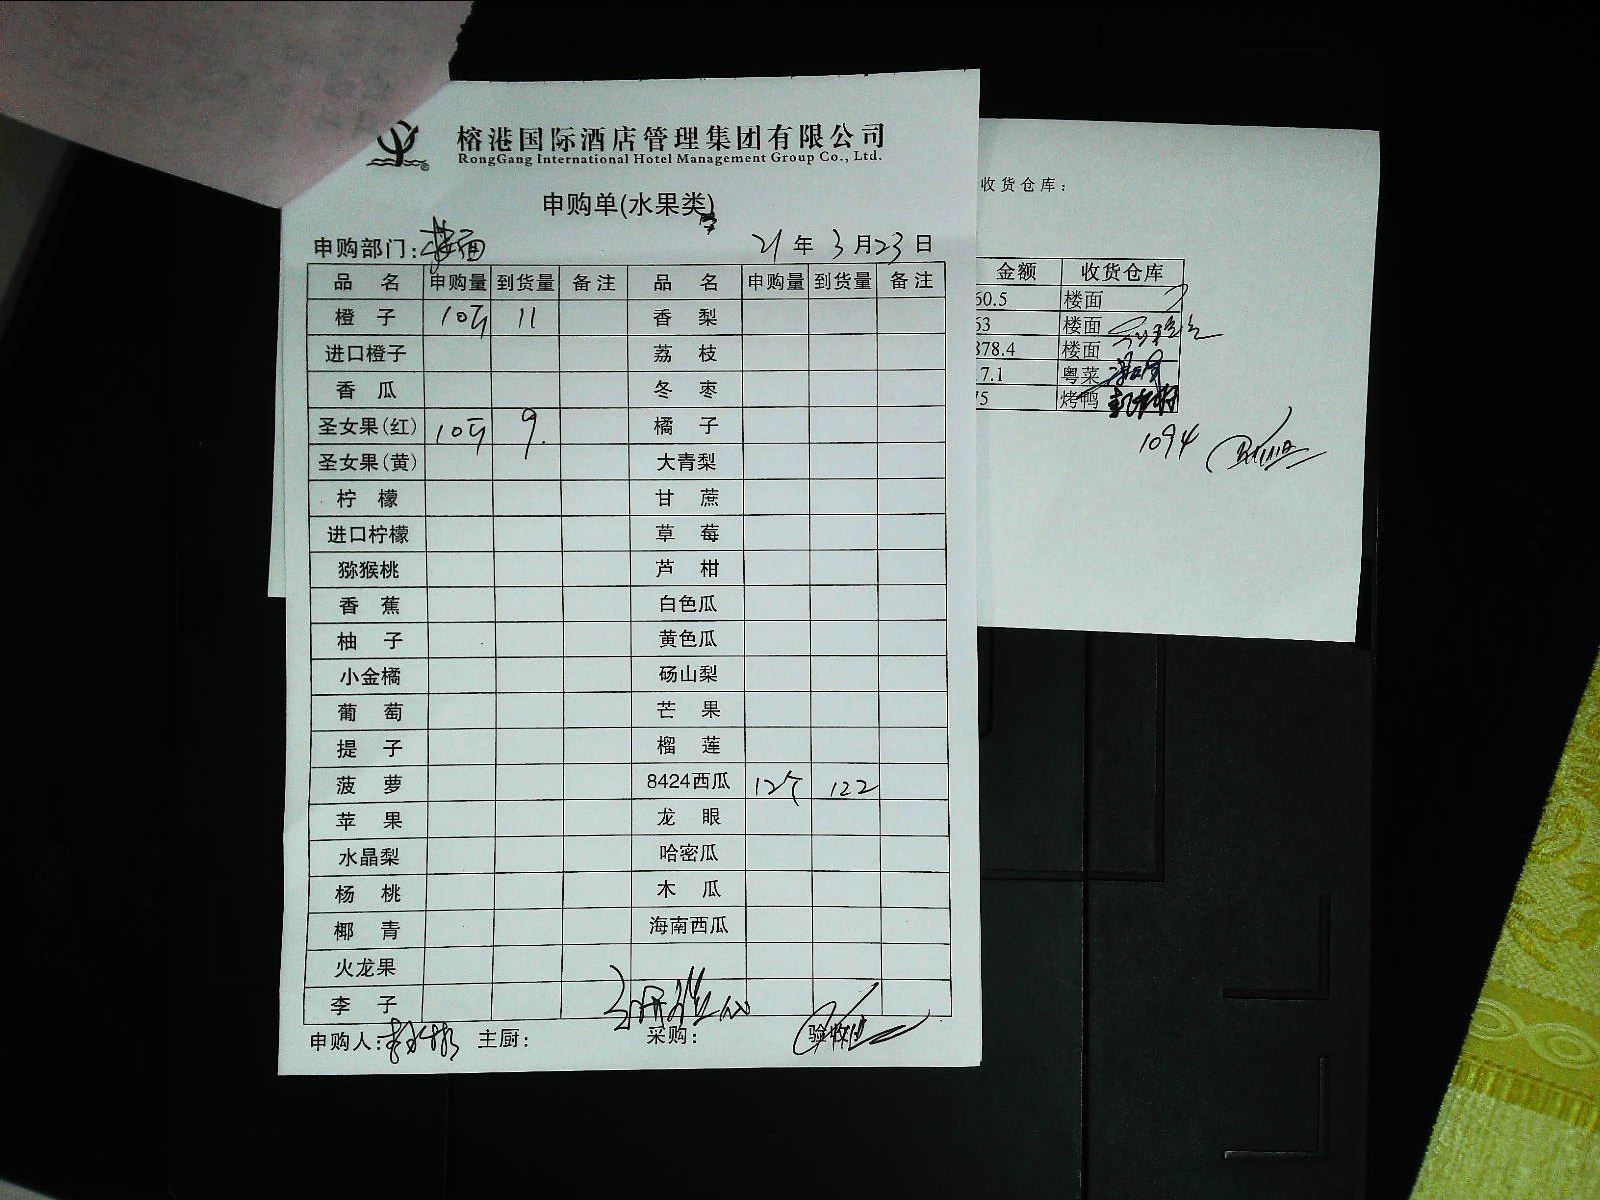 榕港国际酒店管理集团有限公司
RongGang International Hotel Management Group Co., Ltd.
申购单(水果类)
申购部门：楼面 21年3月23日
品名 申购量 到货量 备注 品名 申购量 到货量 备注
橙子 10斤 11 香梨
进口橙子 荔枝
香瓜 冬枣
圣女果(红) 10斤 9. 橘子
圣女果(黄) 大青梨
柠檬 甘蔗
进口柠檬 草莓
猕猴桃 芦柑
香蕉 白色瓜
柚子 黄色瓜
小金橘 砀山梨
葡萄 芒果
提子 榴莲
菠萝 8424西瓜 12个 122
苹果 龙眼
水晶梨 哈密瓜
杨桃 木瓜
椰青 海南西瓜
火龙果
李子
申购人： 主厨： 采购： 验收
收货仓库：
金额 收货仓库
60.5 楼面
63 楼面
878.4 楼面
7.1 粤菜
75 烤鸭
1094